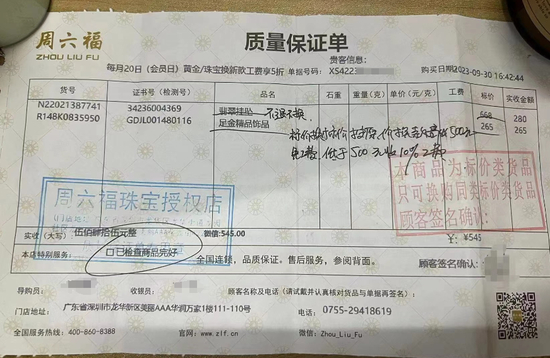 周六福
ZHOU LIU FU
质量保证单
贵客信息:
每月20日(会员日)黄金/珠宝换新款工费享5折 单据号码:XS422
购买日期2023-09-30 16:42:44
货号 证书号(检测号) 品名 石重 重量(克) 单价(元/克) 工费 标价 实收金额
N22021387741 34236004369 翡翠挂坠 不退不换 568 280
R148K0835950 GDJL001480116 足金精品饰品 265 265
500元
低于500元收10%工费
周六福珠宝授权店
本商品为标价类货品
只可换购同类标价类货品
顾客签名确认:
实收(大写) 伍佰肆拾伍元整 微信:545.00 ¥: ¥545
本店特别服务: 口已检查商品完好 全国连锁,品质保证,售后服务,参阅背面。 顾客签名确认:
导购: 收银员: 顾客姓名/电话:(请试戴并认真核对货品与单据再签名)
门店地址: 广东省深圳市龙华新区美丽AAA华润万家1楼111-110号 门店电话: 0755-29418619
全国服务热线:400-860-8388 官网:www.zlf.cn 官方微信:Zhou_Liu_Fu